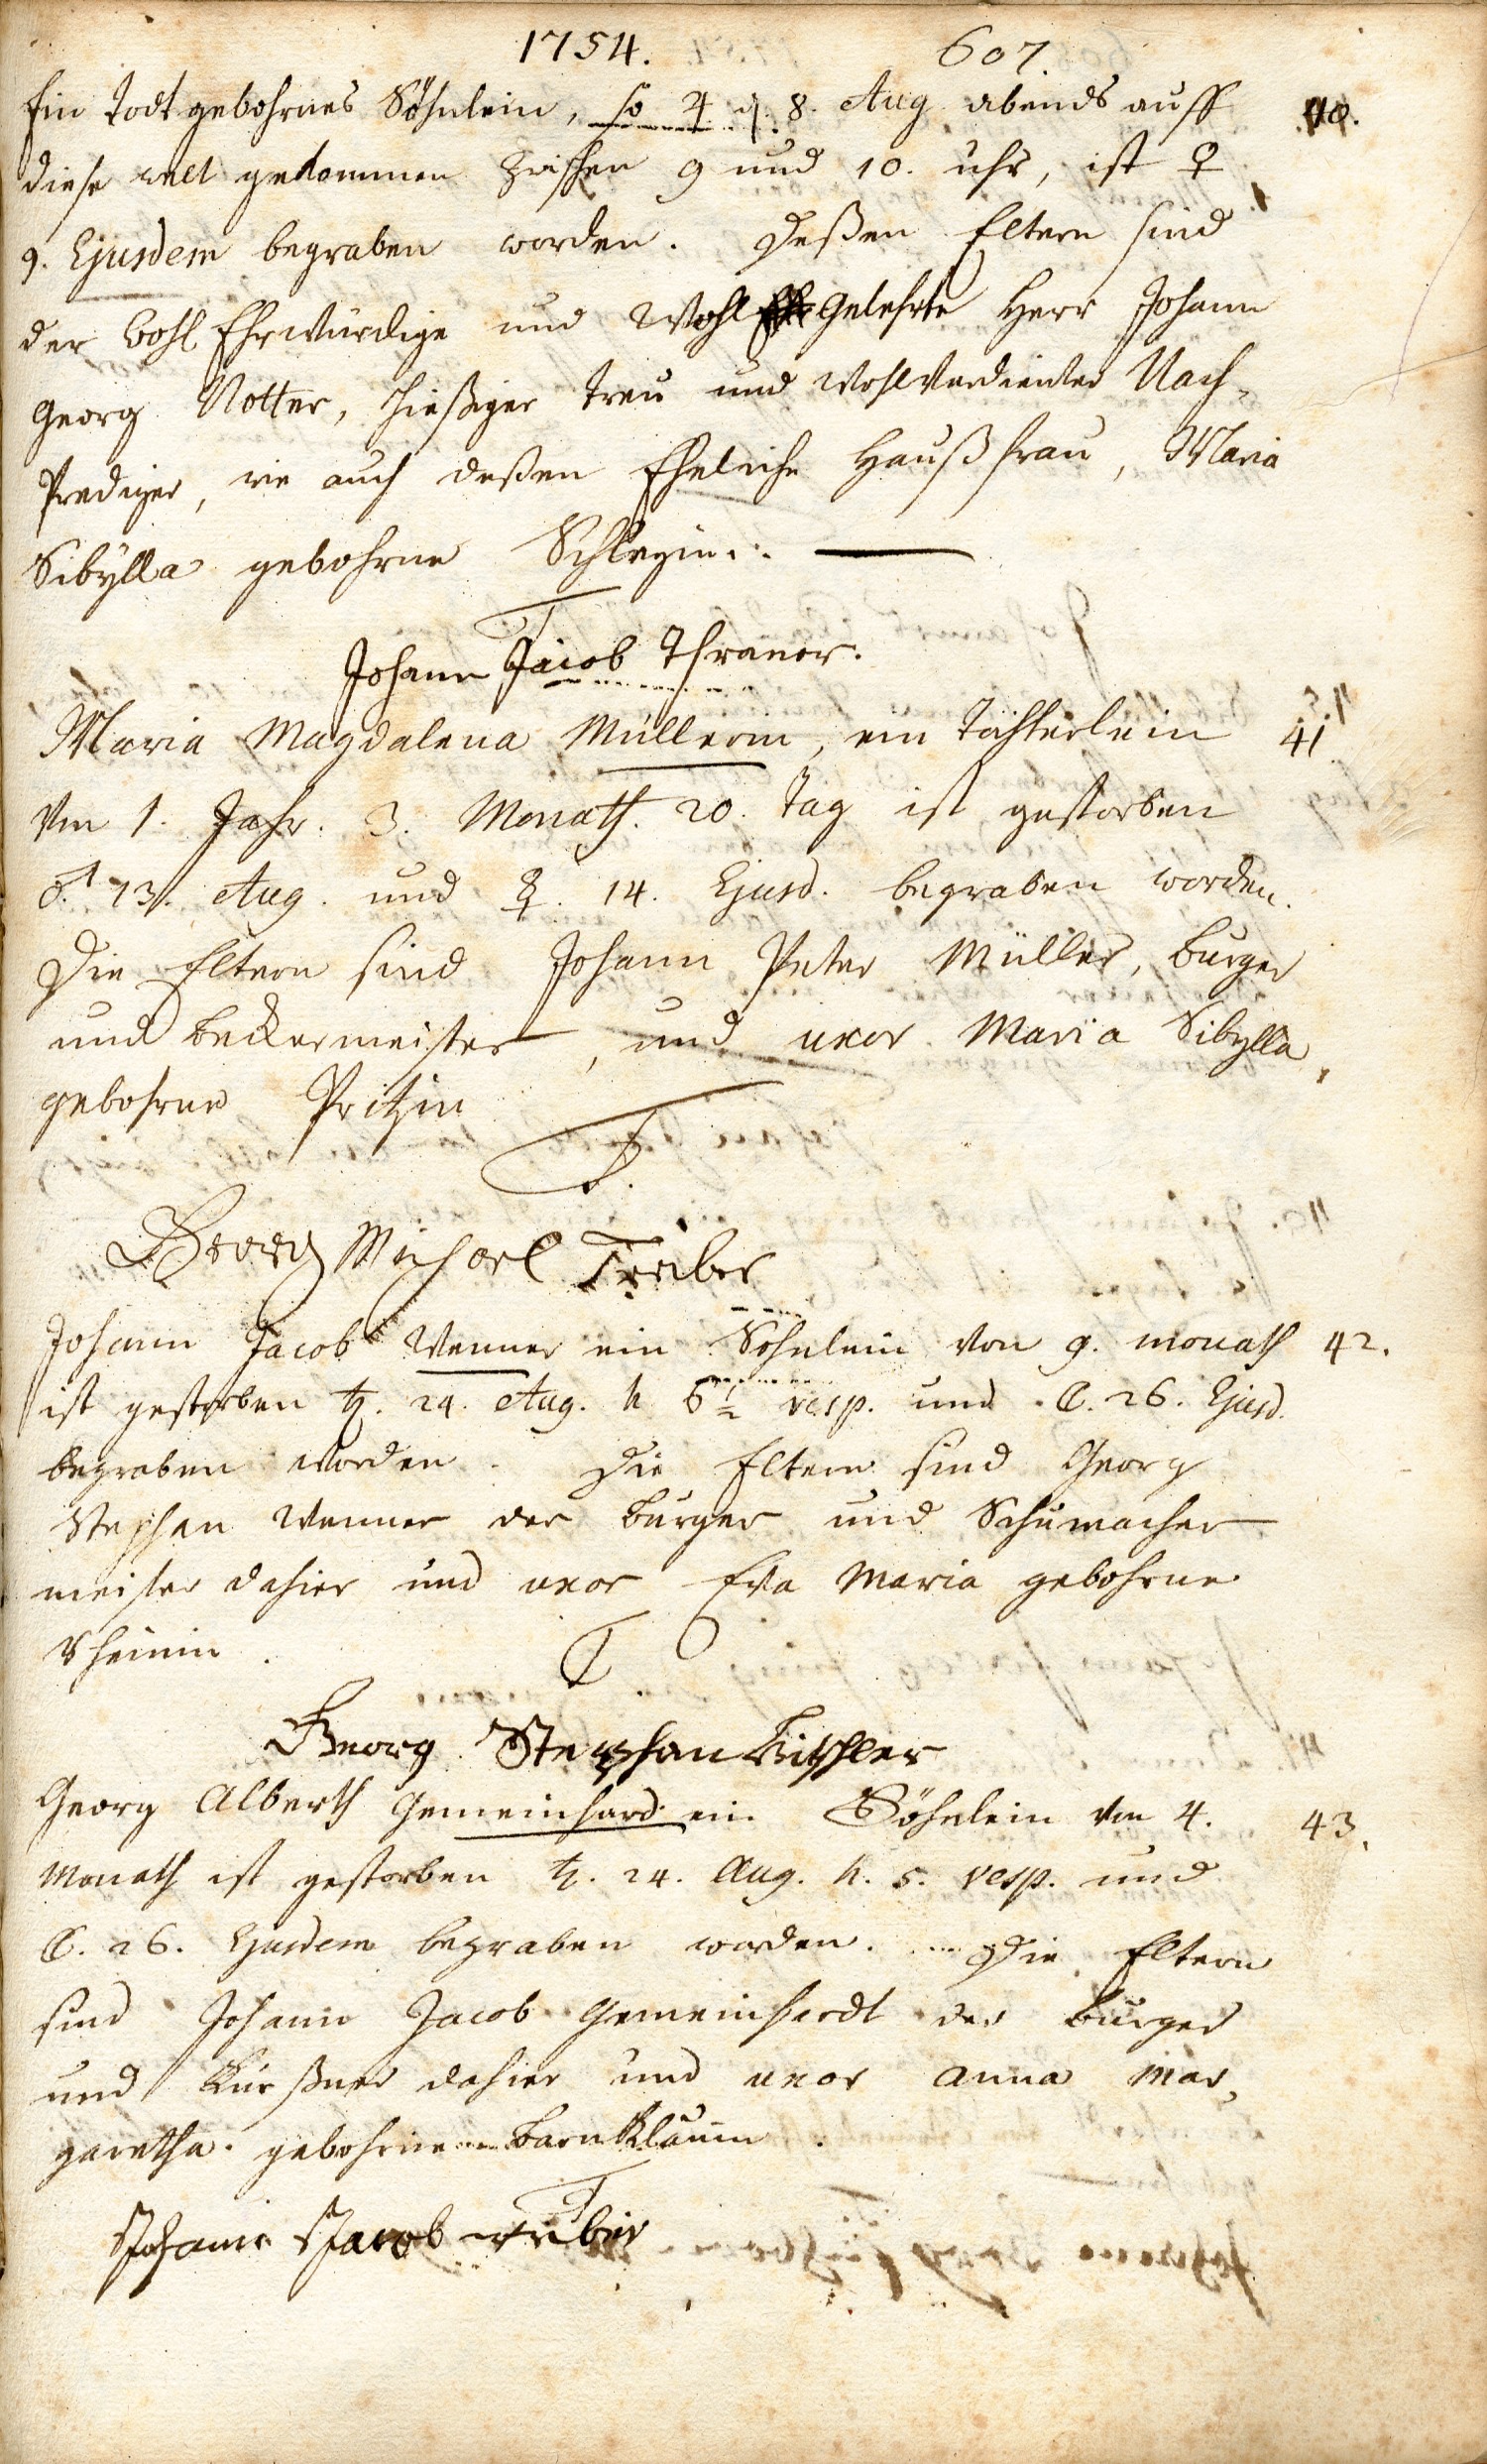 1754. 607.
Ein Todt gebohrnes Söhnlein, so ♃ d. 8. Aug abends auff 40.
diese welt gekommen zwischen 9 und 10. uhr, ist ♀
9. Ejusdem begraben worden. Deßen Eltern sind
der Wohl Ehrwürdige und Wohl Gelehrte Herr Johann
Georg Notter, hießiger treu und wohlverdienter Nach-
Prediger, wie auch deßen Eheliche Haußfrau, Maria
Sibÿlla gebohrne Schlezin.
T
Johann Jacob Thraner.
Maria Magdalena Müllerin, ein Töchterlein 41
von 1. Jahr. 3. Monath. 20. Tag ist gestorben
♂. 13. Aug. und ☿. 14. Ejusd. begraben worden.
Die Eltern sind Johann Peter Müller, burger
und beckermeister, und uxor Maria Sibylla,
gebohrne Pritzin
T.
Georg Michael Treiber
Johann Jacob Wenner ein Söhnlein von 9. monath 42.
ist gestorben ♄. 24. Aug. h. 6 1/2 vesp. und ☾. 26. Ejusd.
begraben worden. Die Eltern sind Georg
Stephan Wenner der burger und Schumacher
meister dahier und uxor Eva Maria gebohrne
Rheinin.
T
Georg Stephan Kissler
Georg Alberth Gemeinhard ein Söhnlein von 4. 43.
Monath ist gestorben ♄. 24. Aug. h. 5. vesp. und
☾. 26. Ejusdem begraben worden. Die Eltern
sind Johann Jacob Gemeinhardt der burger
und Kürßner dahier und uxor Anna Mar-
garetha. gebohrne Barnklauin.
T
Johann Jacob